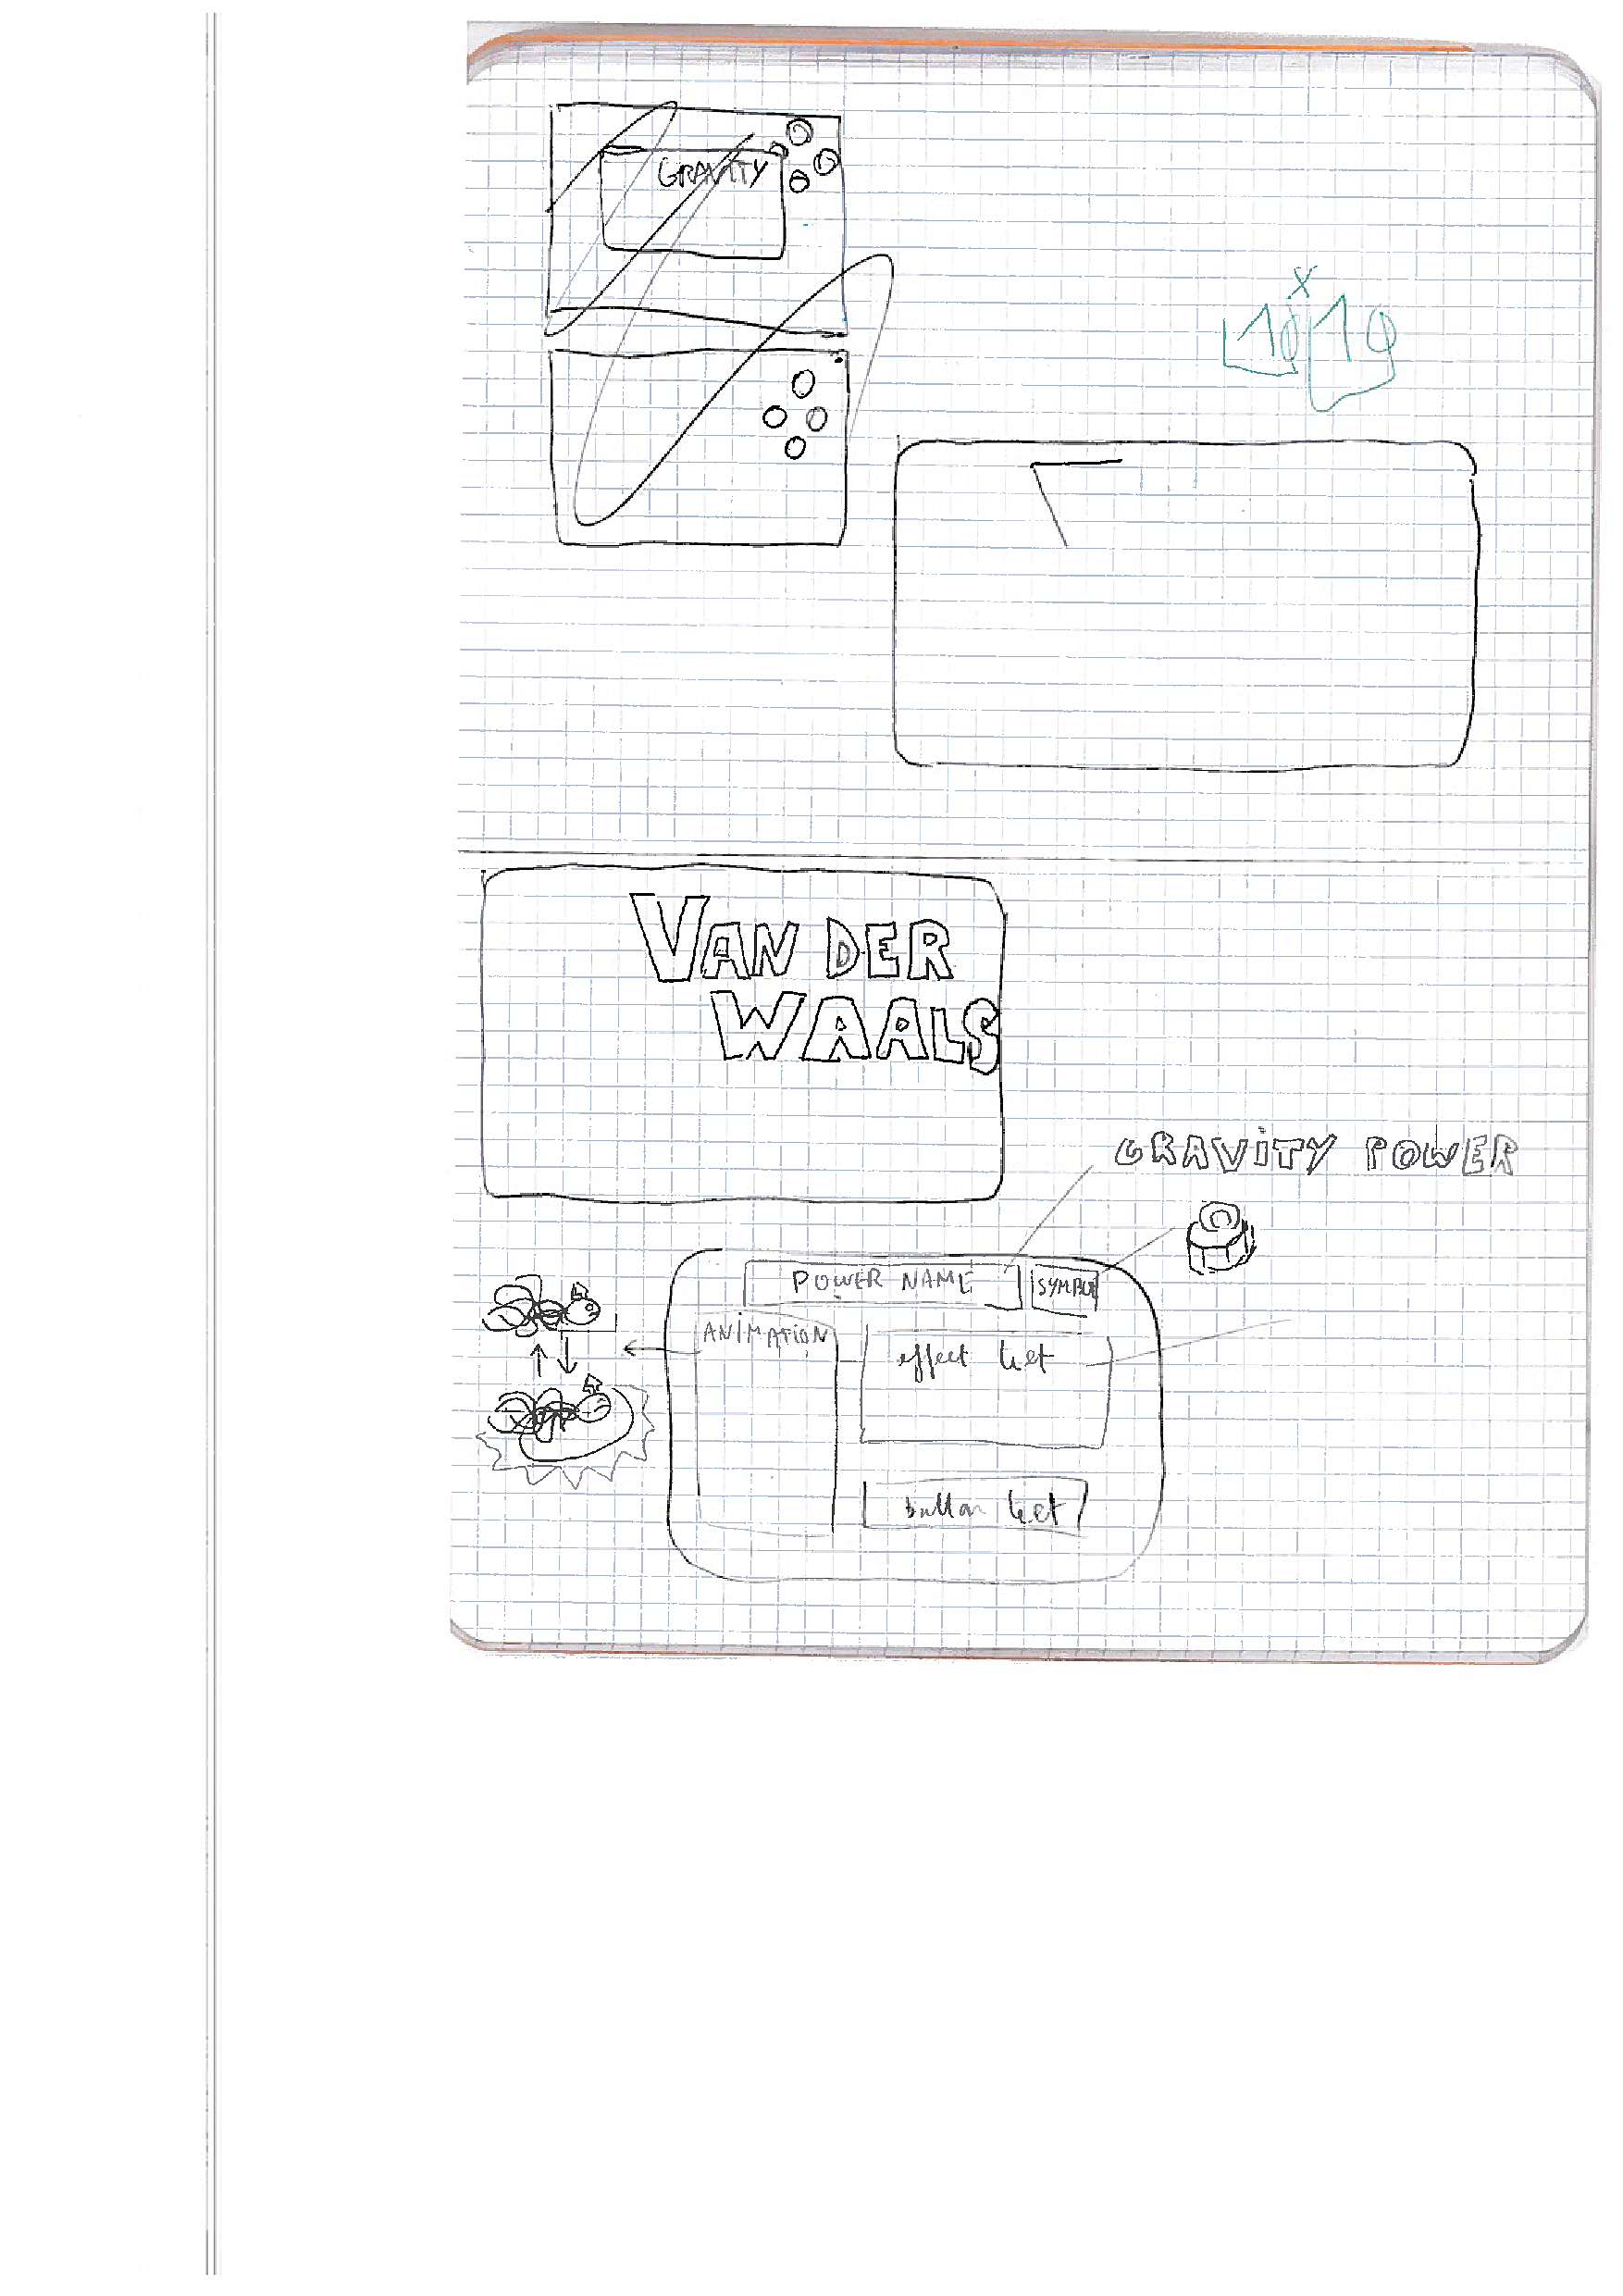 GRAVITY
x
10 10
VAN DER
WAALS
GRAVITY POWER
POWER NAME
SYMBOL
ANIMATION
effect
button